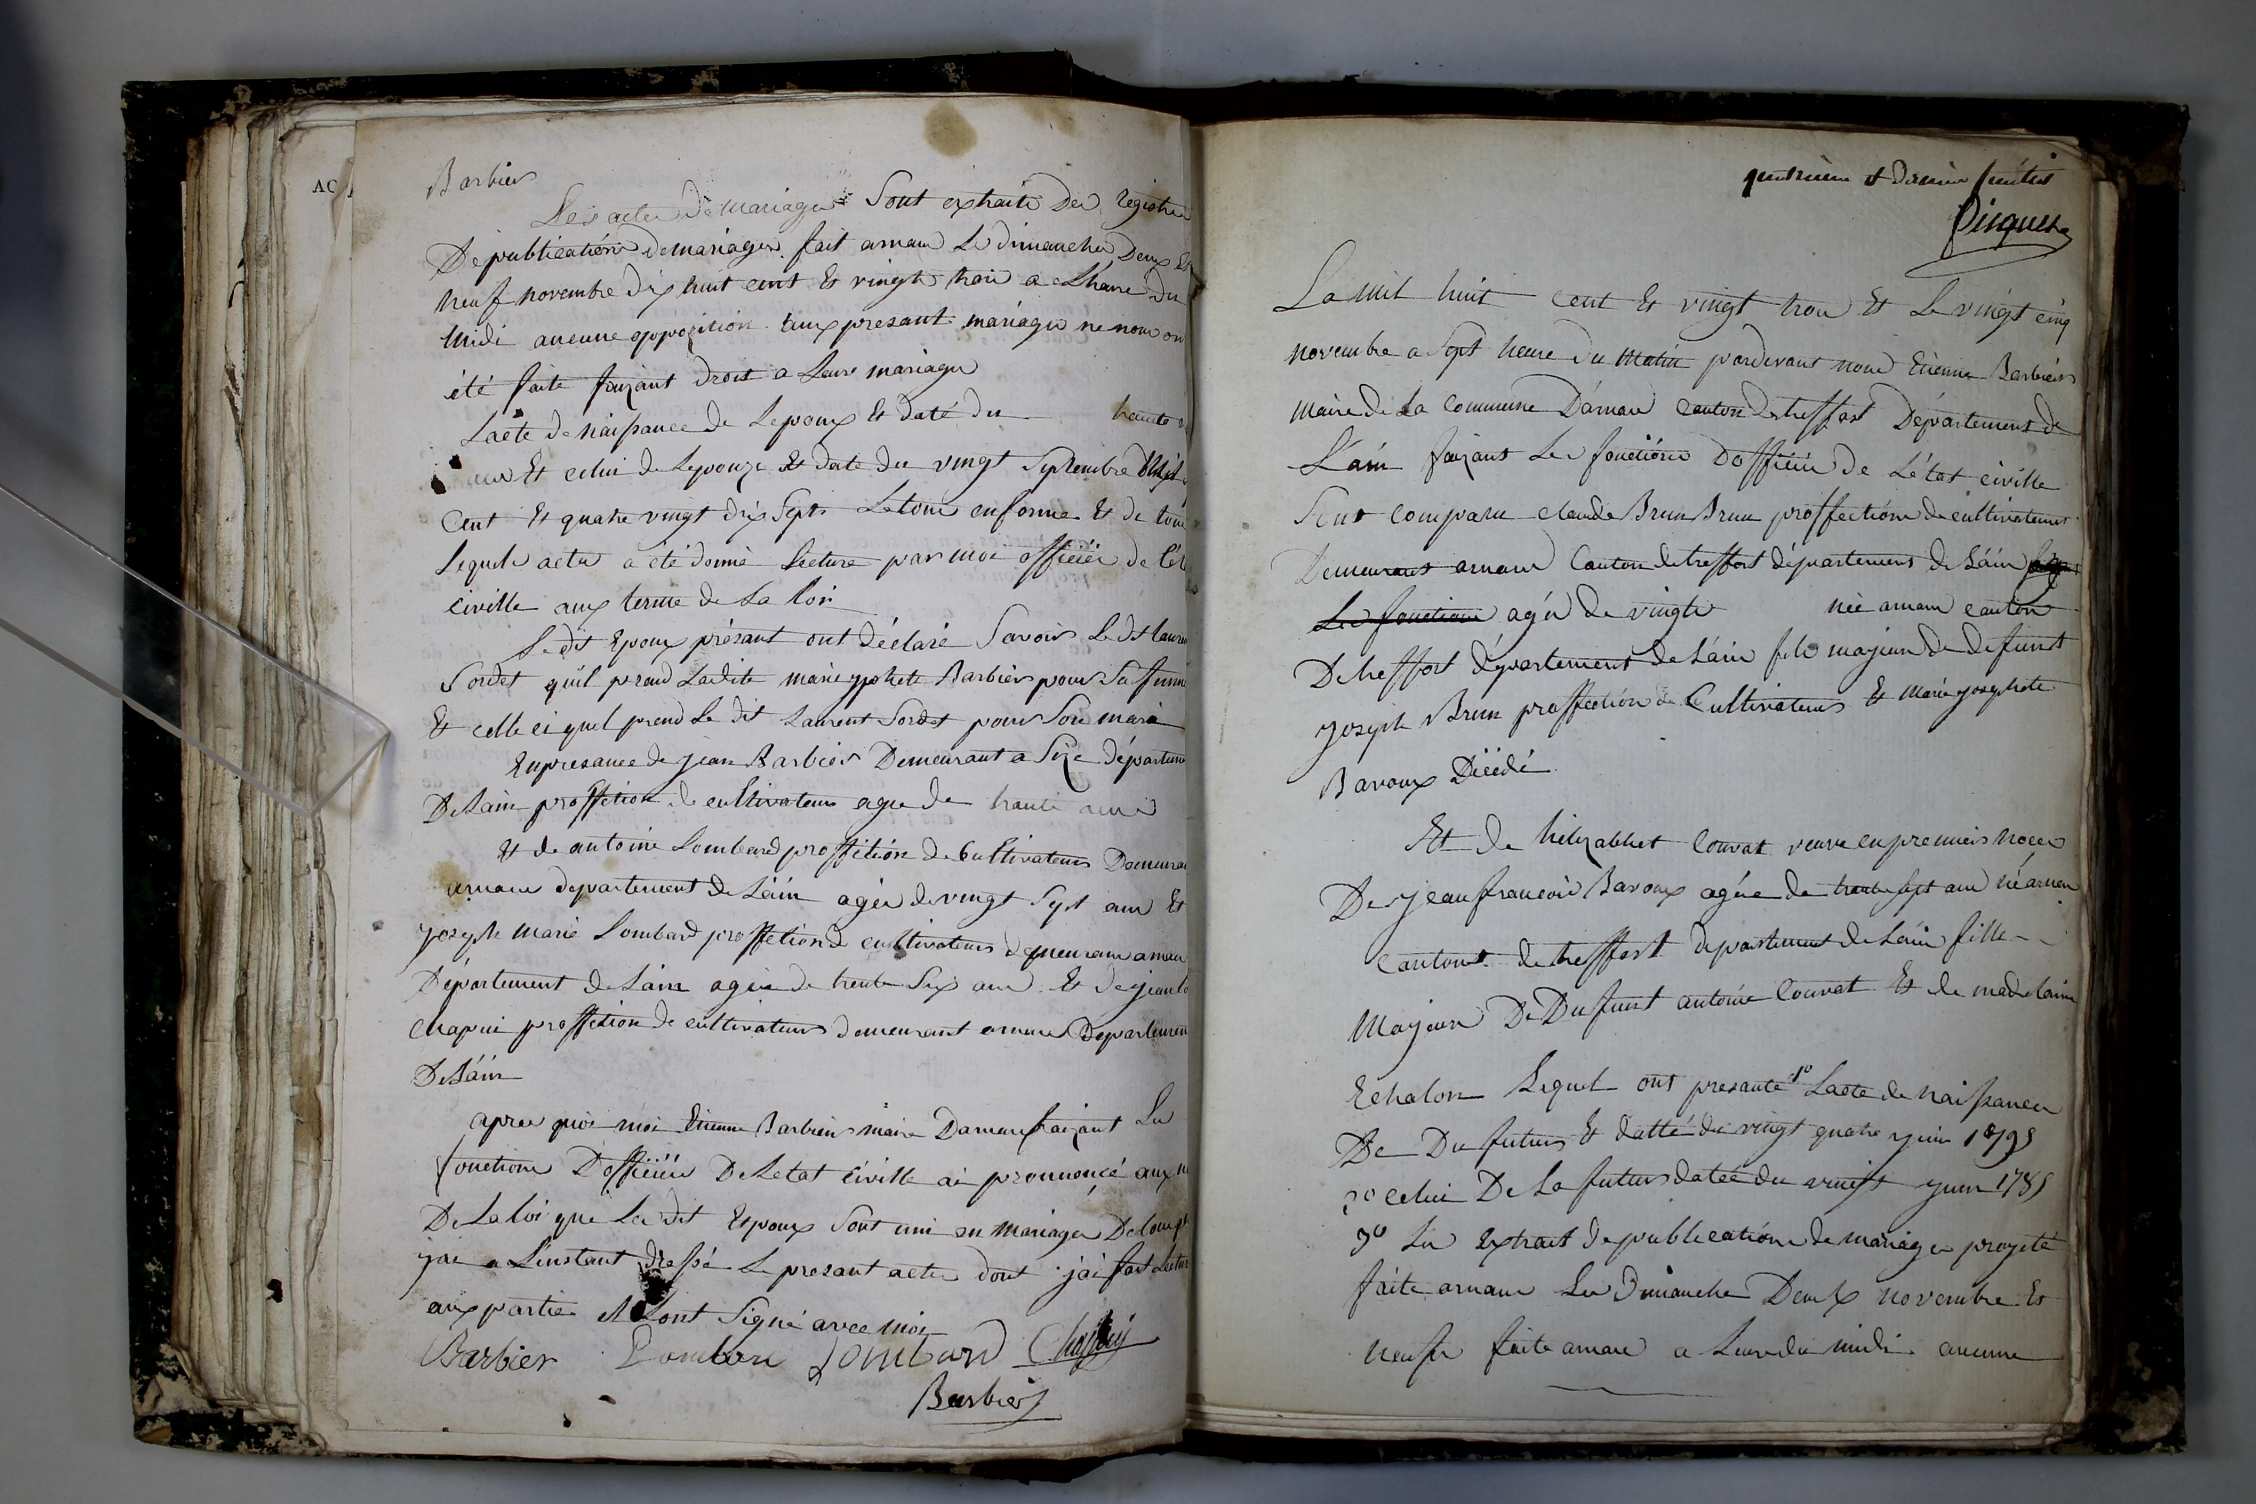 AC
Barbier
Les acte de mariage Sont extraite Des registre
De publication de mariage fait arnan Le dimanche Deux Et
neuf novembre dix huit cent Et vingt trois a Lheure du
midi aucune opposition aux presant mariage ne nous on
été faite faizant droit a Leurs mariage
Lacte de naissance de Lepoux Et daté du trente
Et celui de Lepouze Et date du vingt Septembre
Cent Et quatre vingt dix Sept Le tous enforme Et de tous
Lequele acte a été donné Lecture par moi officiér de Lét
civille aux terme de La loi
Le dit Epoux présant ont déclaré Savoir Le dt Lauren
Sordet quil prand Ladite marie Barbier pour Sa femme
Et celle ci quel prend Le dit Laurent Sordet pour Son mari
En presance de jean Barbier Demeurant a Size département
De Lain proffétion de cultivateur agée de trante
Et de antoine Lombard proffétion de Cultivateur Demeuran
arnan departement de Láin agée de vingt Sept ans Et
joseph marie Lombard proffétion de cultivateur demeuran arnan
Département de Lain agée de trente Six ans Et de jean
Chapui proffétion de cultivateur demeurant arnan Departemen
De Láin
apres quoi moi Etienne Barbier maire Darnan faizant Les
fonctions D'officiér De Letat civille ai prononcé aux
De La loi que Les dit Espoux Sont uni en mariage De tous
jai a Linstant dressé Le presant acte dont jai fait Lecture
aux partie et Lont Signé avec moi
Barbier Lombard Chapuy
Barbier
quatrième et dernier feuillet
Piquet
La mil huit cent Et vingt trois Et Le vingt cinq
novembre a Sept heure du matin pardevant nous Etienne Barbier
maire de La commune D'arnan canton de treffort Département de
L'ain faizant Les fonctions D'officiér de L'état civille
Sont comparu claude Brun Brun proffection de cultivateur
Demeurant arnan Canton de treffort département de Láin
Les fonctions agée de vingte née arnan canton
De treffort département de Láin fils majeur de defunt
joseph Brun proffection de Cultivateur Et Marie josephete
Baroux Décédé
Et de hélizabhet Couvat veuve en premier noces
De jean francois Baroux agée de trante sept ans né arnan
Canton de treffort département de Láin fille
Majeure De Dufunt antoine Couvat Et de madelaine
Echalon Lequel ont presanté 1º Lacte de naissance
De Du futur Et datté du vingt quatre juin 1795
2º celui De La futur datée du vingt juin 1785
3º Les Extrait de publication de mariage projeté
faite arnan Les Dimanche Deux novembre Et
neuf faite arnan a Leure du midi aucune